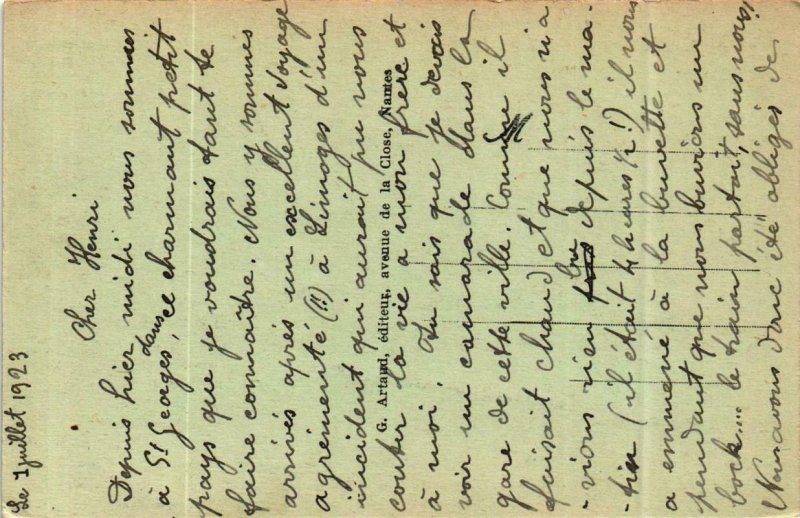 Le 1 juillet 1923
Cher Henri
Depuis hier midi nous sommes
à St Georges, dans ce charmant petit
pays que je voudrais tant te
faire connaître. Nous y sommes
arrivés après un excellent voyage
agrémenté (!!) à Limoges d'un
incident qui aurait pu nous
couter la vie à mon frère et
à moi. Tu sais que je devais
voir un camarade dans la
gare de cette ville. Comme il
faisait chaud et que nous n'a
-vions rien bu depuis le ma-
-tin (il était 4 heures !) il nous
a emmené à la buvette et
pendant que nous buvions un
bock.... le train partait, sans nous!
Nous avons donc été obligés de
G. Artaud, éditeur, avenue de la Close, Nantes